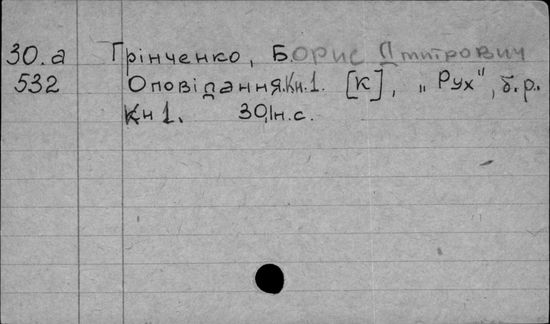 30.а Грінченко, Б.орис Дмитрович
532 Оповідання.Кн.1. [К], „Рух", б.р.
Кн 1. 30,1н.с.